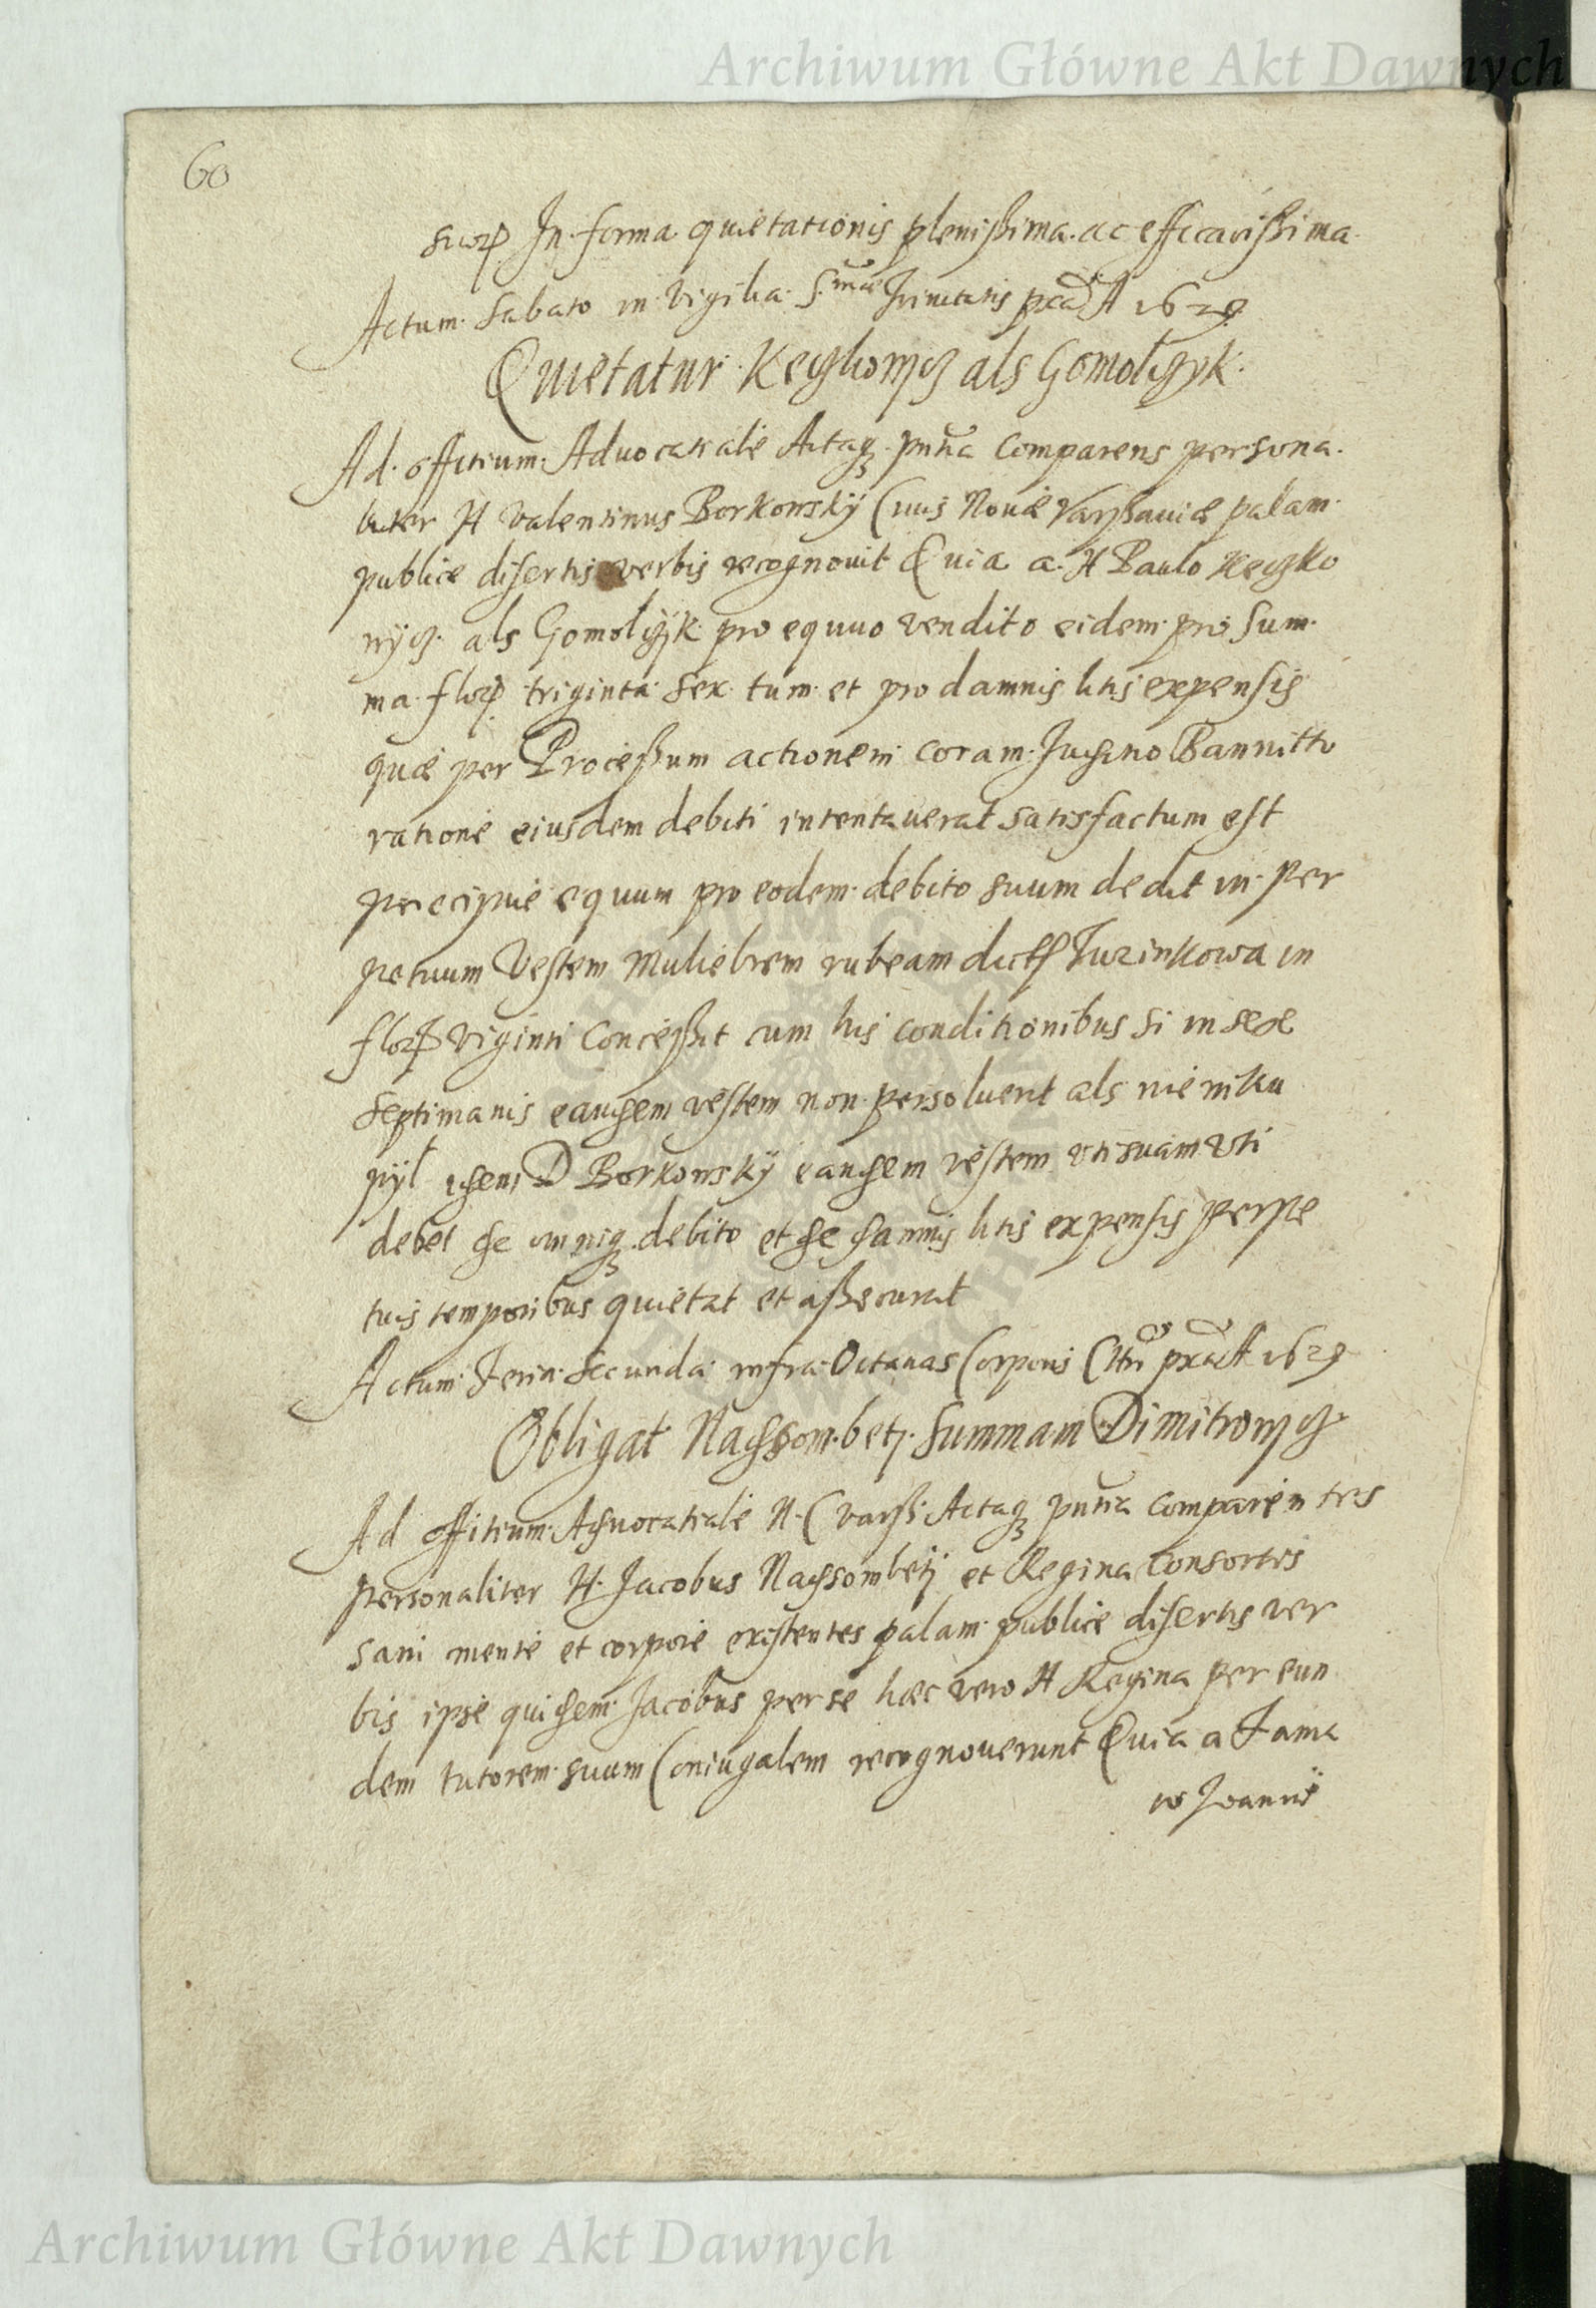 Archiwum Główne Akt Dawnych
60
suorp In forma quietationis plenißima ac efficacißima
Actum Sabato in Vigilia S.mae Trinitatis A 1629
Quietatur als Gomolczyk
Ad officium Advocatiale Actaq pnna Comparens persona
liter H Valentinus Borkowsky Civis Novæ Varszaviæ palam
publice disertis verbis recognovit Quia a H Paulo Keczko
wycz als Gomolczyk pro equuo vendito eidem pro Sum
ma florp triginta sex tum et pro damnis litis expensis
quæ per Proceßum actionem coram Judicio Bannitto
ratione eiusdem debiti intentauerat satisfactum est
precipue equum pro eodem debito suum dedit in per
petuum Vestem Muliebrem rubeam dict Turinkowa in
florp Viginti Conceßit cum his conditionibus si in sex
septimanis eandem vestem non persoluerit als nie niku
pyl idem D Borkowsky eandem vestem uti suam uti
debet de omniq debito et de damnis litis expensis perpe
tuis temporibus quietat et aßecurat
Actum Feria Secunda infra Octavas Corporis A 1629
Obligat Nadsombety Summam Dimitrowycz
Ad officium Advocatiale N C Varß Actaq pnna comparentes
personaliter H Jacobus Nadsombety et Regina Consortes
sani mente et corpore existentes palam publice disertis ver
bis ipse quidem Jacobus per se hæc vero H Regina per eun
dem tutorem suum Coniugalem recognouerunt Quia a Fama
to Joanne
Archiwum Główne Akt Dawnych